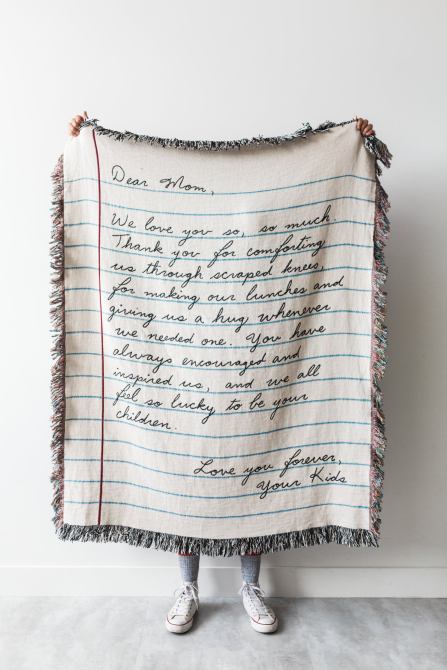 Dear Mom,
We love you so, so much.
Thank you for comforting
us through scraped knees,
for making our lunches and
giving us a hug whenever
we needed one. You have
always encouraged and
inspired us, and we all
feel so lucky to be your
children.
Love you forever,
Your Kids